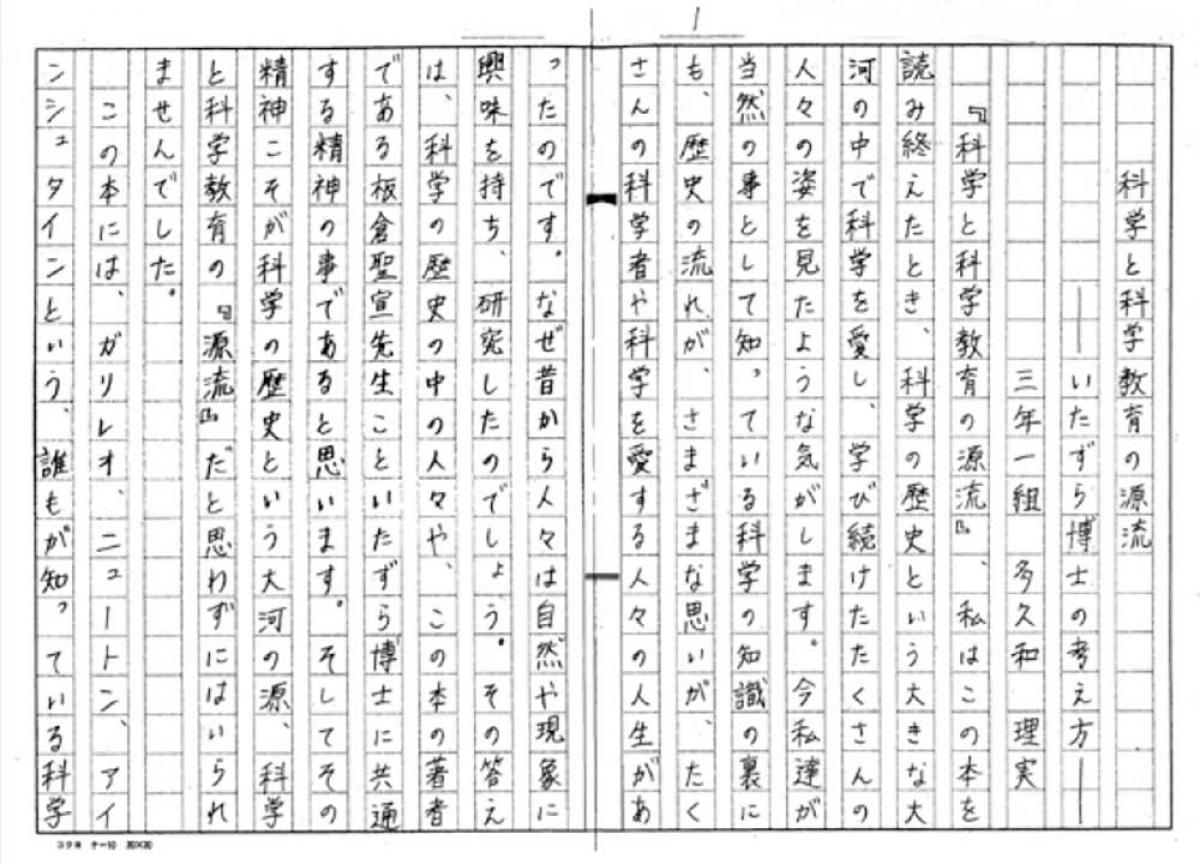 1
科学と科学教育の源流
――いたずら博士の考え方――
三年一組 多久和 理実
『科学と科学教育の源流』、私はこの本を
読み終えたとき、科学の歴史という大きな大
河の中で科学を愛し、学び続けたたくさんの
人々の姿を見たような気がします。今私達が
当然の事として知っている科学の知識の裏に
も、歴史の流れが、さまざまな思いが、たく
さんの科学者や科学を愛する人々の人生があ
ったのです。なぜ昔から人々は自然や現象に
興味を持ち、研究したのでしょう。その答え
は、科学の歴史の中の人々や、この本の著者
である板倉聖宣先生こといたずら博士に共通
する精神の事であると思います。そしてその
精神こそが科学の歴史という大河の源、科学
と科学教育の『源流』だと思わずにはいられ
ませんでした。
この本には、ガリレオ、ニュートン、アイ
ンシュタインという、誰もが知っている科学
コクヨ ケー10 20×20